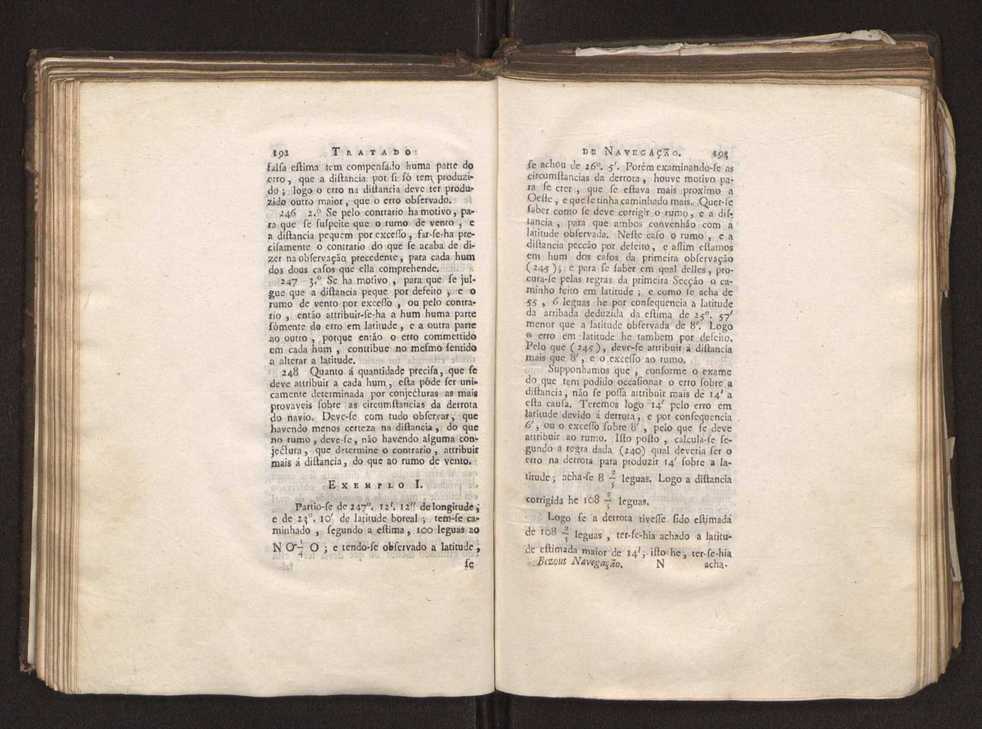 192 TRATADO
falsa estima tem compensado huma parte do
erro, que a distancia por si só tem produzi-
do; logo o erro na distancia deve ter produ-
zido outro maior, que o erro observado.
246 2.º Se pelo contrario ha motivo, pa-
ra que se suspeite que o rumo de vento, e
a distancia pequem por excesso, far-se-ha pre-
cisamente o contrario do que se acaba de di-
zer na observação precedente, para cada hum
dos dous casos que ella comprehende.
247 3.º Se ha motivo, para que se jul-
gue que a distancia peque por defeito, e o
rumo de vento por excesso, ou pelo contra-
rio, então attribuir-se-ha a hum huma parte
sómente do erro em latitude, e a outra parte
ao outro, porque então o erro commettido
em cada hum, contribue no mesmo sentido
a alterar a latitude.
248 Quanto á quantidade precisa, que se
deve attribuir a cada hum, esta póde ser uni-
camente determinada por conjecturas as mais
provaveis sobre as circumstancias da derrota
do navio. Deve-se com tudo observar, que
havendo menos certeza na distancia, do que
no rumo, deve-se, não havendo alguma con-
jectura, que determine o contrario, attribuir
mais á distancia, do que ao rumo de vento.
EXEMPLO I.
Partio-se de 247º. 12'. 12'' de longitude;
e de 23º. 10' de latitude boreal; tem-se ca-
minhado, segundo a estima, 100 leguas ao
NO 1/4 O; e tendo-se observado a latitude,
se
DE NAVEGAÇÃO. 193
se achou de 26º. 5'. Porém examinando-se as
circumstancias da derrota, houve motivo pa-
ra se crer, que se estava mais proximo a
Oeste, e que se tinha caminhado mais. Quer-se
saber como se deve corrigir o rumo, e a dis-
tancia, para que ambos convenhão com a
latitude observada. Neste caso o rumo, e a
distancia peccão por defeito, e assim estamos
em hum dos casos da primeira observação
(245); e para se saber em qual delles, pro-
cura-se pelas regras da primeira Secção o ca-
minho feito em latitude; e como se acha de
55, 6 leguas he por consequencia a latitude
da arribada deduzida da estima de 25º. 57'
menor que a latitude observada de 8'. Logo
o erro em latitude he tambem por defeito.
Pelo que (245), deve-se attribuir á distancia
mais que 8', e o excesso ao rumo.
Supponhamos que, conforme o exame
do que tem podido occasionar o erro sobre a
distancia, não se possa attribuir mais de 14' a
esta causa. Teremos logo 14' pelo erro em
latitude devido á derrota, e por consequencia
6', ou o excesso sobre 8', pelo que se deve
attribuir ao rumo. Isto posto, calcula-se se-
gundo a regra dada (240) qual deveria ser o
erro na derrota para produzir 14' sobre a la-
titude; acha-se 8 2/5 leguas. Logo a distancia
corrigida he 108 2/5 leguas.
Logo se a derrota tivesse sido estimada
de 108 2/5 leguas, ter-se-hia achado a latitu-
de estimada maior de 14'; isto he, ter-se-hia
Bezout Navegação. N acha-